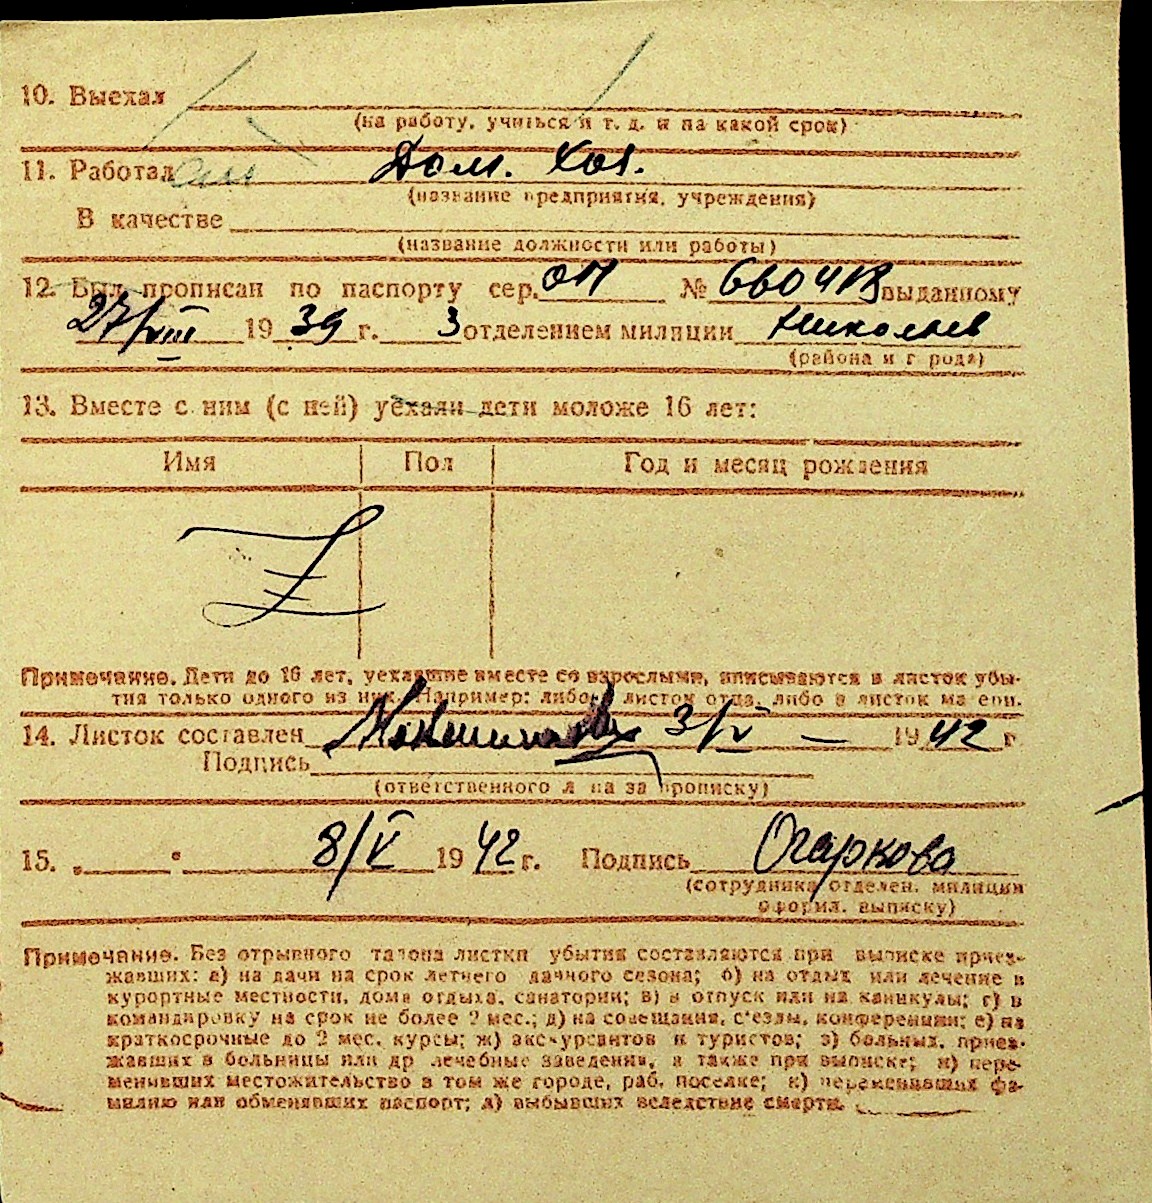 10. Выехал
(на работу, учиться и т. д. и на какой срок)
11. Работал Дом. Хоз.
(название предприятия, учреждения)
В качестве
(название должности или работы)
12. Был прописан по паспорту сер. ОП № выданному
27/VIII 1939 г. 3 отделением милиции Николаев
(района и города)
13. Вместе с ним (с ней) уехали дети моложе 16 лет:
Имя Пол Год и месяц рождения
Z
Примечание. Дети до 16 лет, уехавшие вместе со взрослыми, вписываются в листок убы-
тия только одного из них. Например: либо в листок отца, либо в листок матери.
14. Листок составлен 3/V — 1942 г.
Подпись
(ответственного лица за прописку)
15. „ “ 8/V 1942 г. Подпись Огаркова
(сотрудника отделен. милиции
оформл. выписку)
Примечание. Без отрывного талона листки убытия составляются при выписке приез-
жавших: а) на дачи на срок летнего дачного сезона; б) на отдых или лечение в
курортные местности, дома отдыха, санатории; в) в отпуск или на каникулы; г) в
командировку на срок не более 2 мес.; д) на совещания, с'езды, конференции; е) на
краткосрочные до 2 мес. курсы; ж) экскурсантов и туристов; з) больных, приез-
жавших в больницы или др лечебные заведения, а также при выписке; и) пере-
менивших местожительство в том же городе, раб. поселке; к) переменивших фа-
милию или обменявших паспорт; л) выбывших вследствие смерти.